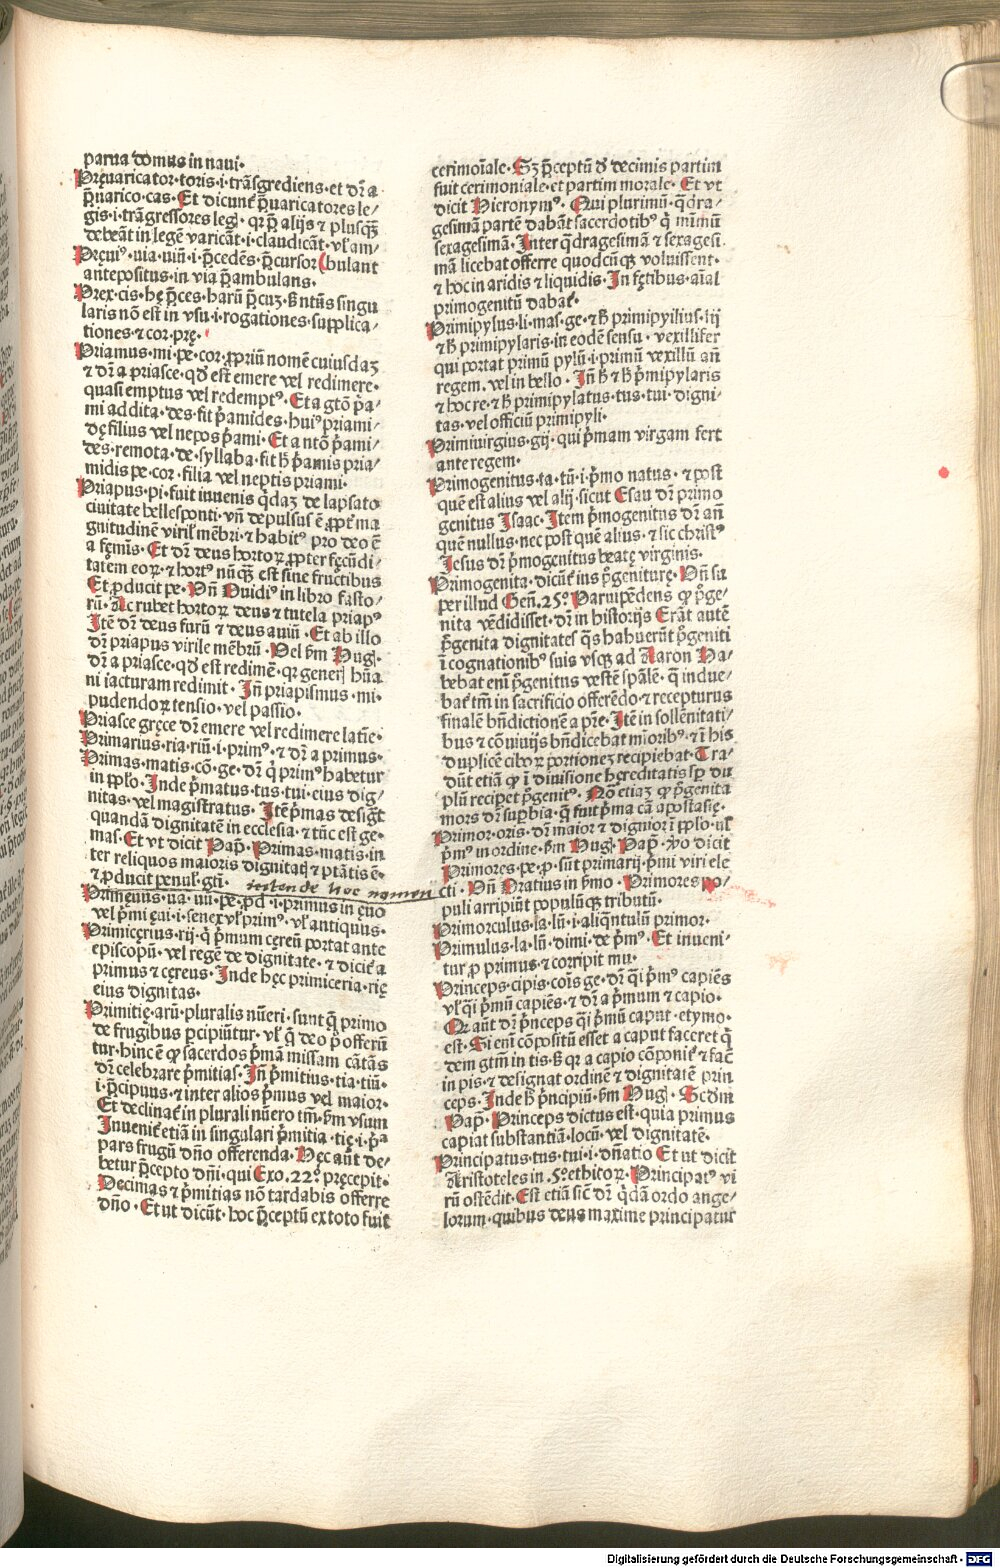 parua domus in naui·
Pręuaricator·toris·i·trāsgrediens·et dr̄ a
p̄uarico·cas·Et dicunt᷑ p̄uaricatores le⸗
gis·i·trāgressores legꝭ·qꝛ p̄ alijs ⁊ plusq̄ꝫ
debeāt in legē varicāt·i·claudicāt·vl̓ am⸗
Pręuiꝰ·uia·uiū·i·p̄cedēs·p̄cursor (bulant
antepositus·in via p̄ambulans·
Prex·cis·hę p̄ces·harū p̄cuꝫ·ß ntūs singu
laris nō est in vsu·i·rogationes·supplica⸗
tiones·⁊ cor·prę·
Priamus·mi·pe·cor·ꝓpriū nomē cuiusdaꝫ
⁊ dr̄ a priasce·qd̓ est emere vel redimere·
quasi emptus vel redemptꝰ·Et a gtō p̓a⸗
mi addita·des·fit p̓amides·huiꝰ priami⸗
dę filius vel nepos p̓ami·Et a ntō p̓ami⸗
des·remota·de·syllaba·fit h̓ p̓amis pria⸗
midis pe·cor·filia vel neptis priami·
Priapus·pi·fuit iuuenis q̓daꝫ de lapsato
ciuitate bellesponti·vn̄ depulsus ē ꝓpt᷑ ma
gnitudinē viril᷑ mēbri·⁊ habitꝰ pro deo ē
a fęmīs·Et dr̄ deus hortoꝝ ꝓpter fęcūdi⸗
tatem eoꝝ·⁊ hortꝰ nūqꝫ est sine fructibus
Et ꝓducit pe·Vn̄ Ouidiꝰ in libro fasto⸗
rū·Ac rubet hortoꝝ deus ⁊ tutela priapꝰ
Itē dr̄ deus furū ⁊ deus auiū·Et ab illo
dr̄ priapus virile mēbrū·Vel ẜm Hugꝭ·
dr̄ a priasce·qd̓ est redimē·qꝛ generꝭ hūa
ni iacturam redimit·Iñ priapismus·mi·
pudendoꝝ tensio·vel passio·
Priasce gręce dr̄ emere vel redimere latīe·
Primarius·ria·riū·i·primꝰ·⁊ dr̄ a primus·
Primas·matis·cō·ge·dr̄ q̓ primꝰ habetur
in pp̄lo·Inde p̓matus·tus·tui·eius dig⸗
nitas·vel magistratus·Itē p̓mas desigt᷑
quandā dignitatē in ecclesia·⁊ tūc est ge·
mas·Et vt dicit Pap̄·Primas·matis·in
ter reliquos maioris dignitatꝭ ⁊ ptātis ē·
⁊ ꝓducit penul·gtī· intende hoc nomen
Primęuus·ua·uū·pe·ꝓd·i·primus in ęuo
vel p̓mi ęui·i·senex vl̓ primꝰ·vl̓ antiquus·
Primicęrius·rij·q̓ p̓mum cęreū portat ante
episcopū·vel regē de dignitate·⁊ dicit᷑ a
primus ⁊ cęreus·Inde hęc primiceria·rię
eius dignitas·
Primitię·arū·pluralis nūeri·sunt q̄ primo
de frugibus p̱cipiūtur·vl̓ q̄ deo p̓ offerū
tur·hinc ē ꝙ sacerdos p̓mā missam cātās
dr̄ celebrare p̓mitias·Iñ p̓mitius·tia·tiū·
i·p̄cipuus·⁊ inter alios p̓mus vel maior·
Et declinat᷑ in plurali nūero tm̄·ẜm vsum
Inuenit᷑ etiā in singulari p̓mitia·tię·i·p̓ᵃ
pars frugū dn̄o offerenda·Hęc aūt de⸗
betur p̄cepto dn̄i·qui Exo·22°·pręcepit·
Decimas ⁊ p̓mitias nō tardabis offerre
dn̄o·Et ut dicūt·hoc p̄ceptū ex toto fuit
cerimoīale·Sꝫ p̄ceptū d̓ decimis partim
fuit cerimoniale·et partim morale·Et vt
dicit Hieronymꝰ·Qui plurimū·q̄dra⸗
gesimā partē dabāt sacerdotibꝰ q̓ mīmū
sexagesimā·Inter q̄dragesimā ⁊ sexagesi
mā licebat offerre quodcūqꝫ voluissent·
⁊ hoc in aridis ⁊ liquidis·In fętibus aīal
primogenitū dabat᷑·
Primipylus·li·mas·ge·⁊ h̓ primipyilius·lij
⁊ h̓ primipylaris·in eodē sensu·vexillifer
qui portat primū pylū·i·primū vexillū añ
regem·vel in bello·Iñ h̓ ⁊ h̓ p̓mipylaris
⁊ hoc re·⁊ h̓ primipylatus·tus·tui·digni⸗
tas·vel officiū primipyli·
Primiuirgius·gij·qui p̓mam virgam fert
ante regem·
Primogenitus·ta·tū·i·p̓mo natus·⁊ post
quē est alius vel alij·sicut Esau dr̄ primo
genitus Isaac·Item p̓mogenitus dr̄ añ
quē nullus·nec post quē alius·⁊ sic christꝰ
Iesus dr̄ p̓mogenitus beatę virginis·
Primogenita·dicūt᷑ ius p̓geniturę·Vn̄ su
per illud Geñ·25°·Paruipēdens ꝙ p̓ge⸗
nita vēdidisset·dr̄ in historijs Erāt autē
p̓genita dignitates q̓s habuerūt p̓geniti
ī cognationibꝰ suis vsqꝫ ad Aaron Ha⸗
bebat enī p̓genitus vestē sp̄alē·q̄ indue⸗
bat᷑ tm̄ in sacrificio offerēdo·⁊ recepturus
finalē bn̄dictionē a p̄re·Itē in sollēnitati⸗
bus ⁊ cōuiuijs bn̄dicebat mīoribꝰ·⁊ ī his
duplicē ciboꝝ portionez recipiebat·Tra⸗
dūt etiā ꝙ ī diuisione hęreditatis sp̱ du
plū recipet p̓genitꝰ·Nō etiaꝫ ꝙ p̓genita
mors dr̄ sup̱bia·q̄ fuit p̓ma cā apostasię·
Primor·oris·dr̄ maior ⁊ dignior ī pp̄lo·vl̓
p̓mꝰ in ordine·ẜm Hugꝭ·Pap̄·v̓o dicit
Primores·pe·ꝓ·sūt primarij·p̓mi viri ele
cti·Vn̄ Oratius in p̓mo·Primores po⸗
puli arripiūt populūqꝫ tributū·
Primorculus·la·lū·i·aliqn̄tulū primor·
Primulus·la·lū·dimi·de p̓mꝰ·Et inueni⸗
tur ꝓ primus·⁊ corripit mu·
Princeps·cipis·cois ge·dr̄ q̓ i·p̓mꝰ capiēs
vl̓ q̓si p̓mū capiēs·⁊ dr̄ a p̓mum ⁊ capio·
Qꝛ aūt dr̄ p̓nceps q̓si p̓mū caput·etymo·
est·Si enī cōpositū esset a caput faceret q̓
dem gtm̄ in tis·ß qꝛ a capio cōponit᷑ ⁊ fac̄
in pis·⁊ designat ordinē ⁊ dignitatē prin
ceps·Inde h̓ p̓ncipiū·ẜm Hugꝭ·Scd̓m
Pap̄·Princeps dictus est·quia primus
capiat substantiā·locū·vel dignitatē·
Principatus·tus·tui·i·dn̄atio Et ut dicit
Aristoteles in·5°·ethicoꝝ·Principatꝰ vi
rū ostēdit·Est etiā sic̄ dr̄ q̓dā ordo ange⸗
lorum·quibus deus maxime principatur
Digitalisierung gefördert durch die Deutsche Forschungsgemeinschaft - DFG